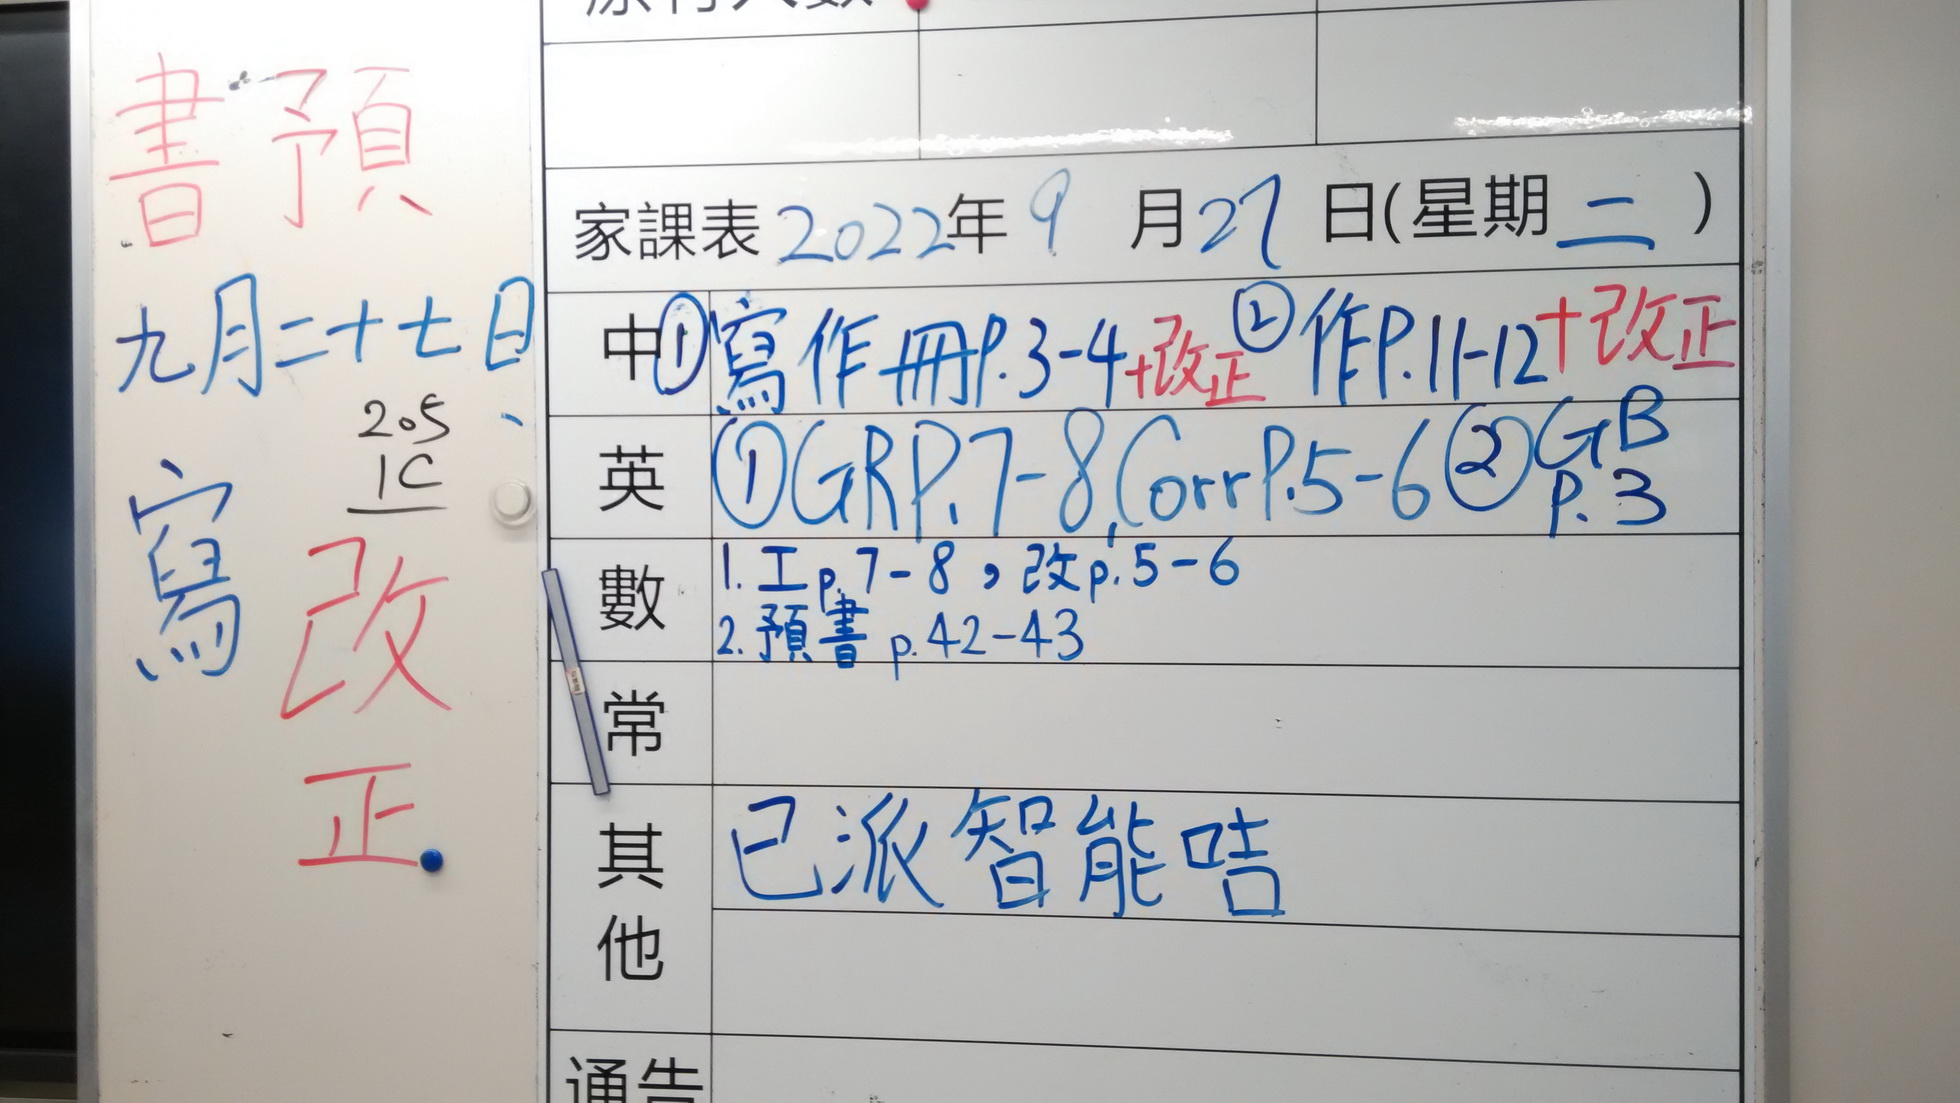 預
予
書
九月二十七日、
205
1C
寫
改正
原有人數
家課表2022年9月27日(星期二)
中 ①寫作冊P.3-4+改正 ②作P.11-12+改正
英 ①GRP.7-8,CorrP.5-6 ②GB P.3
數 1.工p.7-8,改p.5-6
2.預書p.42-43
常
其他 已派智能咭
通告